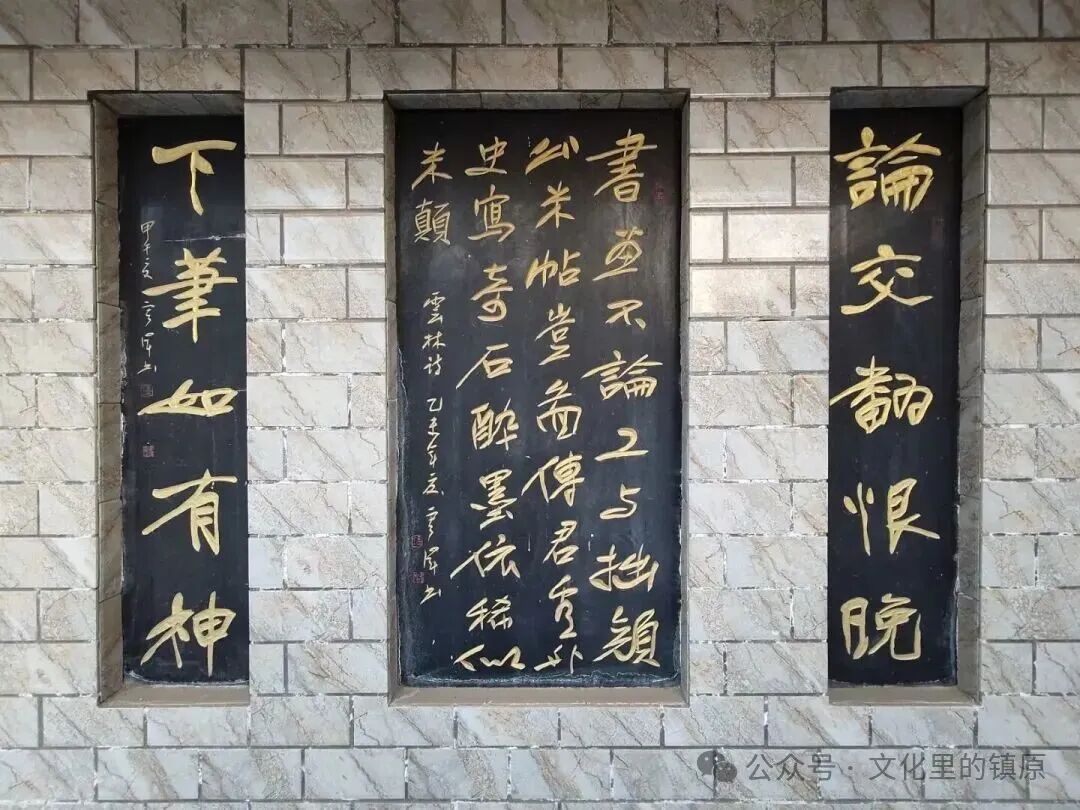 論交翻恨晚
書畫不論工与拙顏
公米帖豈圖傳君看外
史寫奇石醉墨依稀似
米顛
雲林诗 乙未年夏
下筆如有神
甲午夏
公众号 · 文化里的镇原